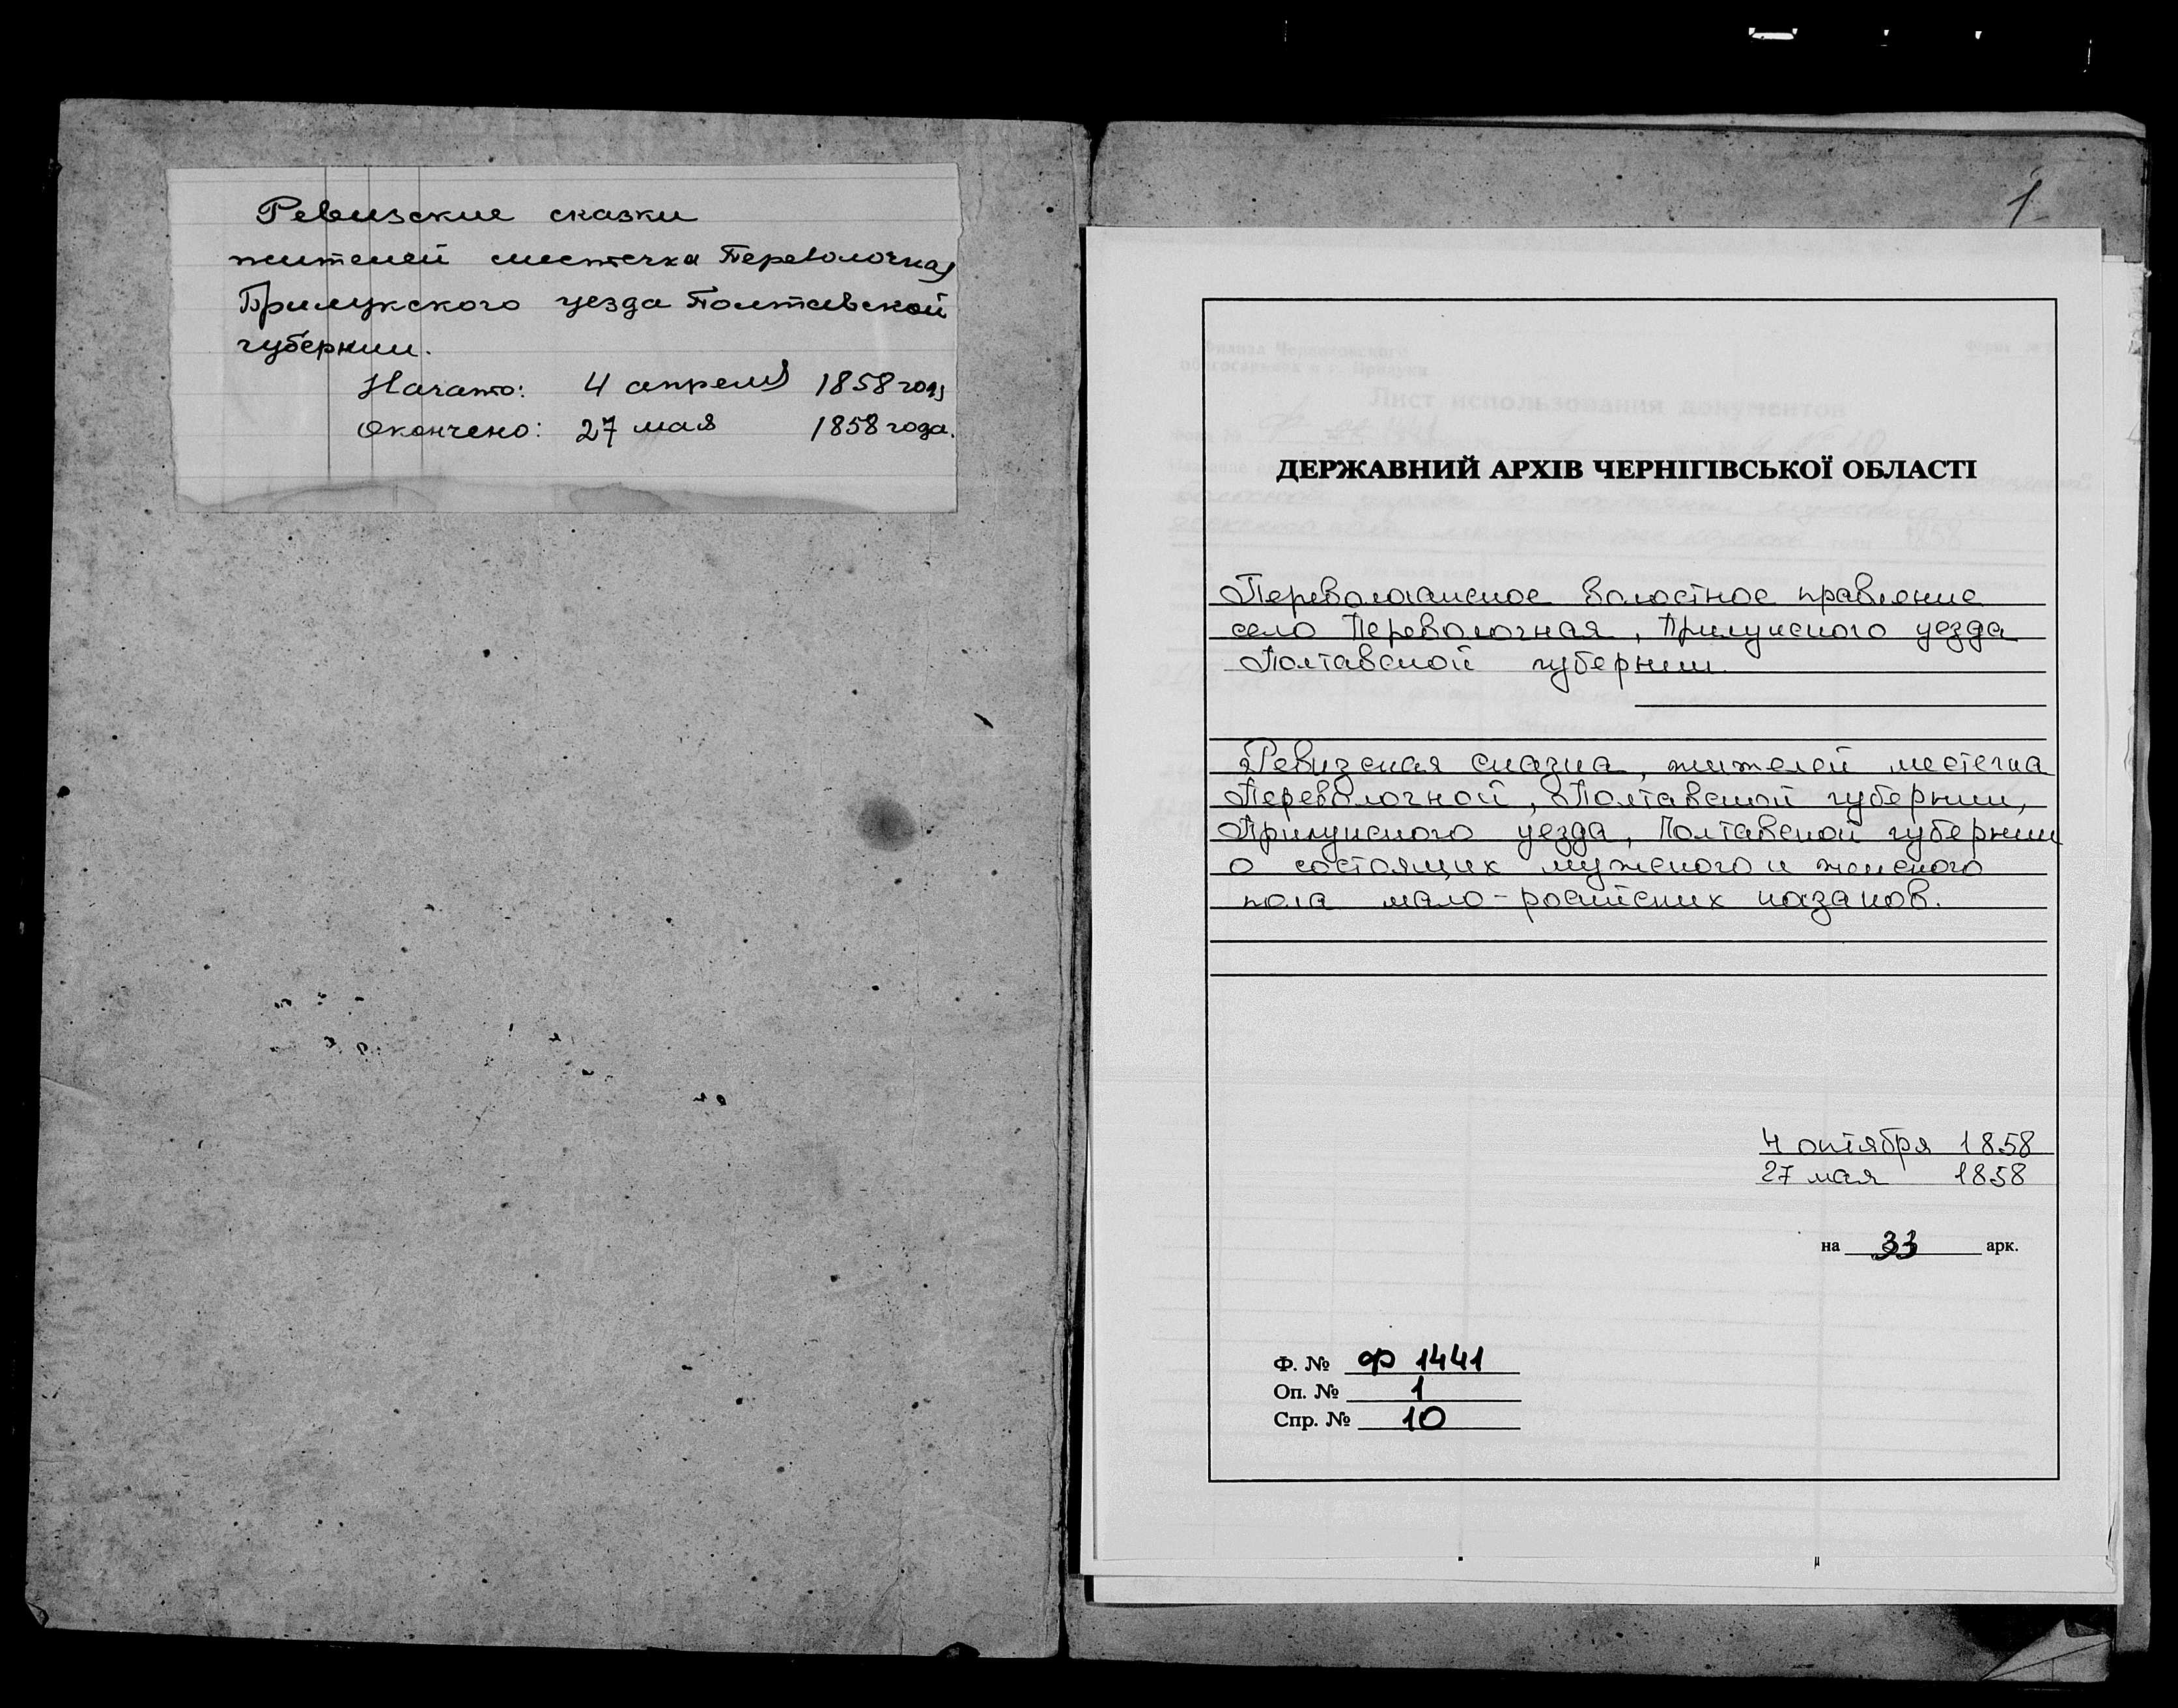 Ревизские сказки
жителей местечка Переволочная
Прилукского уезда Полтавской
губернии.
Начато: 4 апреля 1858 года
Окончено: 27 мая 1858 года.
1
ДЕРЖАВНИЙ АРХІВ ЧЕРНІГІВСЬКОЇ ОБЛАСТІ
Переволочанское волостное правление
село Переволочная, Прилукского уезда
Полтавской губернии.
Ревизская сказка, жителей местечка
Переволочной, Полтавской губернии,
Прилукского уезда, Полтавской губернии
о состоящих мужского и женского
пола мало-росийских казаков.
4 октября 1858
27 мая 1858
на 33 арк.
Ф. № Ф 1441
Оп. № 1
Спр. № 10